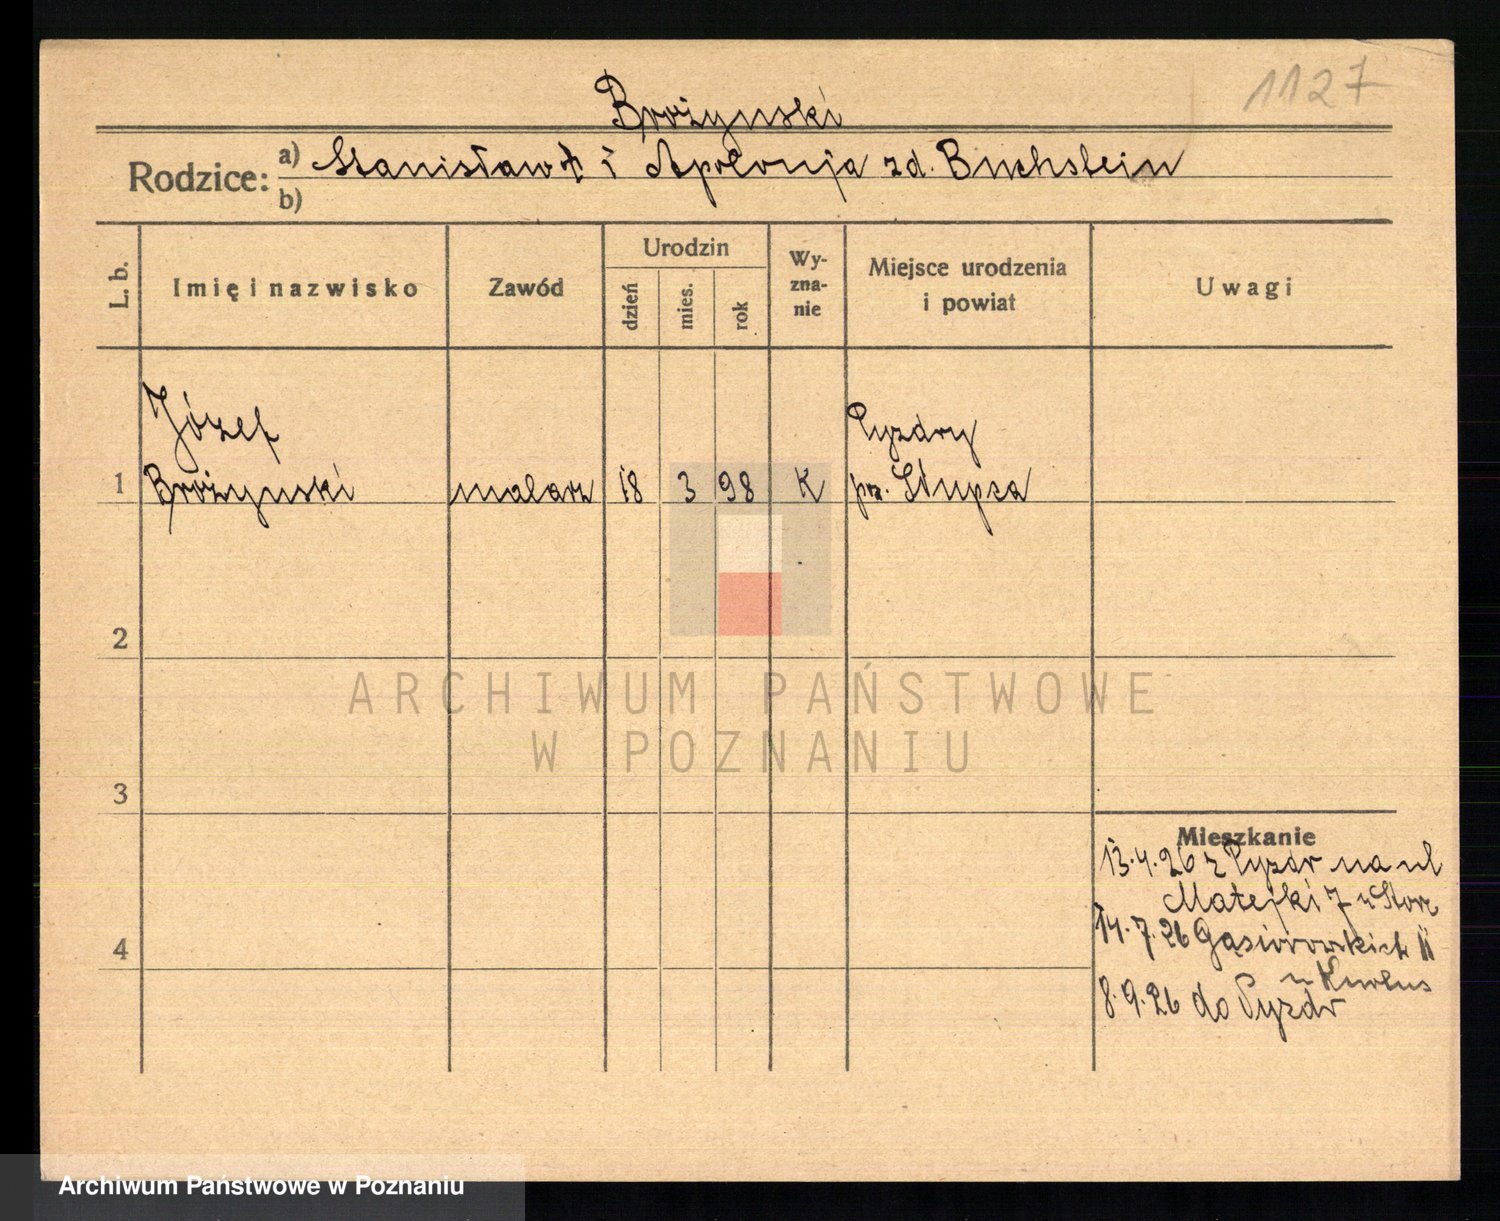 1127
Brożynski
Rodzice: a) Stanisław † i Apolonja zd. Buchstein
b)
L. b.
Imię i nazwisko
Zawód
Urodzin
dzień
mies.
rok
Wy-
zna-
nie
Miejsce urodzenia
i powiat
Uwagi
Józef
Pyzdry
1 Brożynski malarz 18 3 98 K pw. Słupca
2
ARCHIWUM PAŃSTWOWE
W POZNANIU
3
Mieszkanie
13.4.26 z Pyzdr na ul
Matejki 7 u
14.7.26 Gąsiorowskich
4
u
8.9.26 do Pyzdr
Archiwum Państwowe w Poznaniu